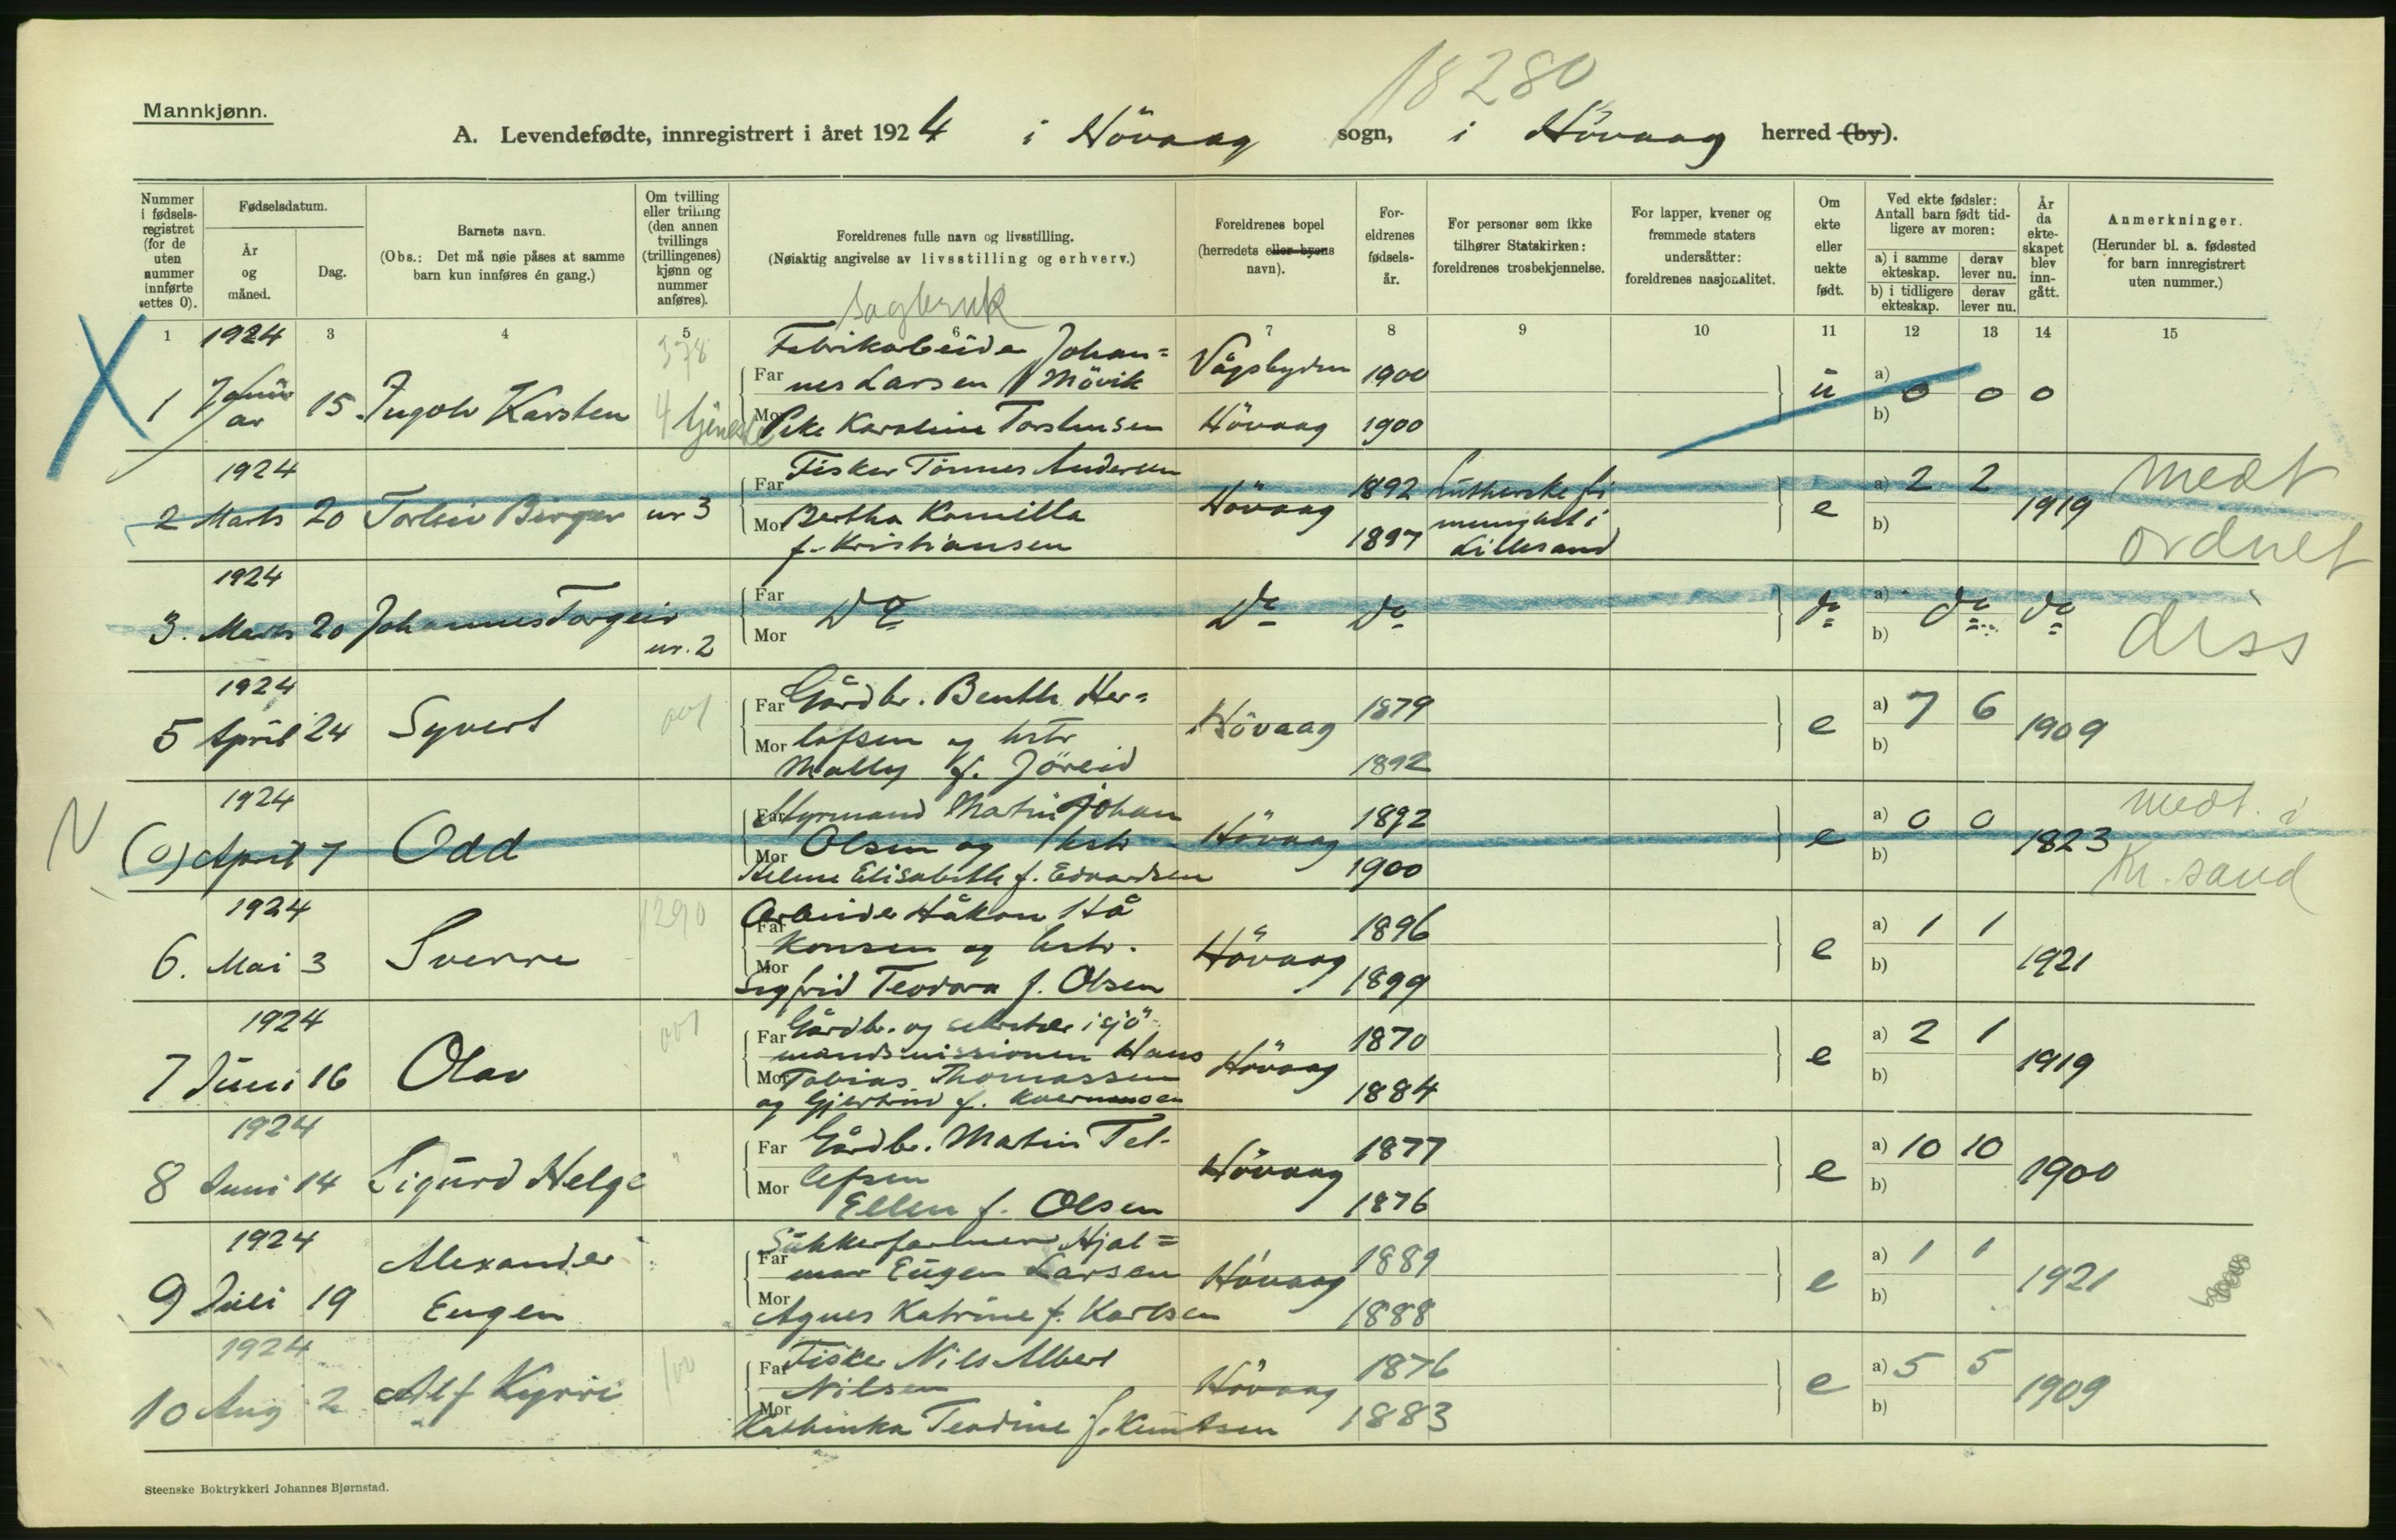 18280
Mannkjønn.
A. Levendefødte, innregistrert i året 1924 i Hövaag sogn, i Hövaag herred (by).
Nummer i fødsels-registret (for de uten nummer innførte settes 0).
Fødselsdatum.
År og måned.
Dag.
Barnets navn.
(Obs.: Det må nøie påses at samme barn kun innføres én gang.)
Om tvilling eller trilling (den annen tvillings (trillingenes) kjønn og nummer anføres).
Foreldrenes fulle navn og livsstilling.
(Nøiaktig angivelse av livsstilling og erhverv.)
Foreldrenes bopel (herredets eller byens navn).
For-eldrenes fødsels-år.
For personer som ikke tilhører Statskirken: foreldrenes trosbekjennelse.
For lapper, kvener og fremmede staters undersåtter: foreldrenes nasjonalitet.
Om ekte eller uekte født.
Ved ekte fødsler: Antall barn født tid-ligere av moren:
a) i samme ekteskap. derav lever nu.
b) i tidligere ekteskap. derav lever nu.
År da ekte-skapet blev inn-gått.
Anmerkninger.
(Herunder bl. a. fødested for barn innregistrert uten nummer.)
1 3 4 5 6 7 8 9 10 11 12 13 14 15
Sagbruk
1924 378 Fabrikarbeider Johan=
1 Januar 15 Ingolv Karsten Far nes Larsen Mövik Vågsbygden 1900 u a) 0 0 0
4 tjeneste Mor Pike Karoline Torstensen Hövaag 1900 b)
1924 Fisker Tönnes Andersen
2 Marts 20 Torleiv Birger nr 3 Far Mor Bertha Kamilla Hövaag 1892 Lutherske fri e a) 2 2 1919 medt
f. Kristiansen 1897 menighet i Lillesand b) ordnet
1924
3. Marts 20 Johannes Torgeir nr. 2 Far Do Do Do do a) do do diss
Mor b)
1924
5 April 24 Syvert Far Gårdbr. Benth Her= Hövaag 1879 e a) 7 6 1909
Mor lofsen og hstr b)
Mally f. Jöreid 1892
1924
N (0) April 7 Odd Far Styrmand Martin Johan Hövaag 1892 e a) 0 0 1823 medt. i
Mor Olsen og hstr b) Kr. sand
Helene Elisabeth f. Edvardsen 1900
1924
6. Mai 3 Sverre 1290 Arbeider Håkon Hå Hövaag 1896 e a) 1 1 1921
Far konsen og hstr.
Mor Sigfrid Teodora f. Olsen 1899 b)
1924
7 Juni 16 Olav Far Gårdbr. og sekretær i sjö= Hövaag 1870 e a) 2 1 1919
mandsmissionen Hans
Mor Tobias Thomassen b)
og Gjertrud f. 1884
1924
8 Juni 14 Sigurd Helge Far Gårdbr. Martin Tel- Hövaag 1877 e a) 10 10 1900
Mor lefsen b)
Ellen f. Olsen 1876
1924
9 Juli 19 Alexander Eugen Sukkerfarmer Hjal= Hövaag 1889 e a) 1 1 1921
Far mar Eugen Larsen
Mor Agnes Katrine f. Karlsen 1888 b)
1924
10 Aug 2 Alf Kyrre 100 Far Fisker Nils Albert Hövaag 1876 e a) 5 5 1909
Nilsen
Mor Kathinka Teodine f. Knutsen 1883 b)
Steenske Boktrykkeri Johannes Bjørnstad.